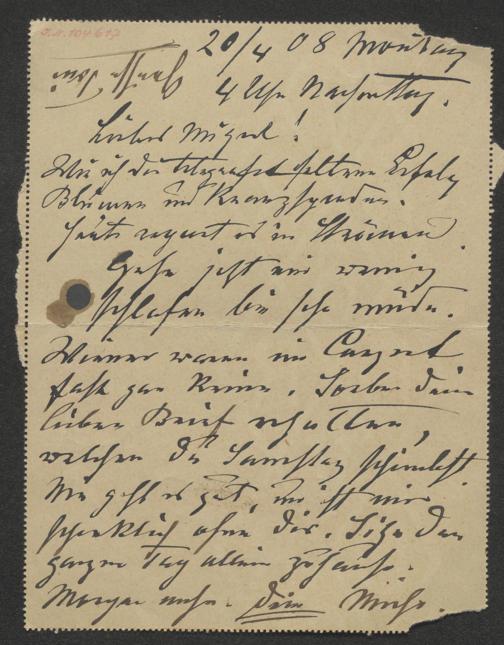 J.N. 104617
20/4 08 Montag
4 Uhr Nachmittag.
Liebes !
Wie ich dir telegrafirt seltener Erfolg
Blumen und Kranzspenden.
Heute regnet es in Strömen.
Gehe jetzt ein wenig
schlafen bin sehr müde.
Wiener waren im Conzert
fast gar keine. Soeben dein
lieben Brief erhalten,
welchen du Samstag schriebst.
Mir geht es gut, nur ist mir
schrecklich ohne dir. Sitze den
ganzen Tag allein zuhause.
Morgen mehr. dein